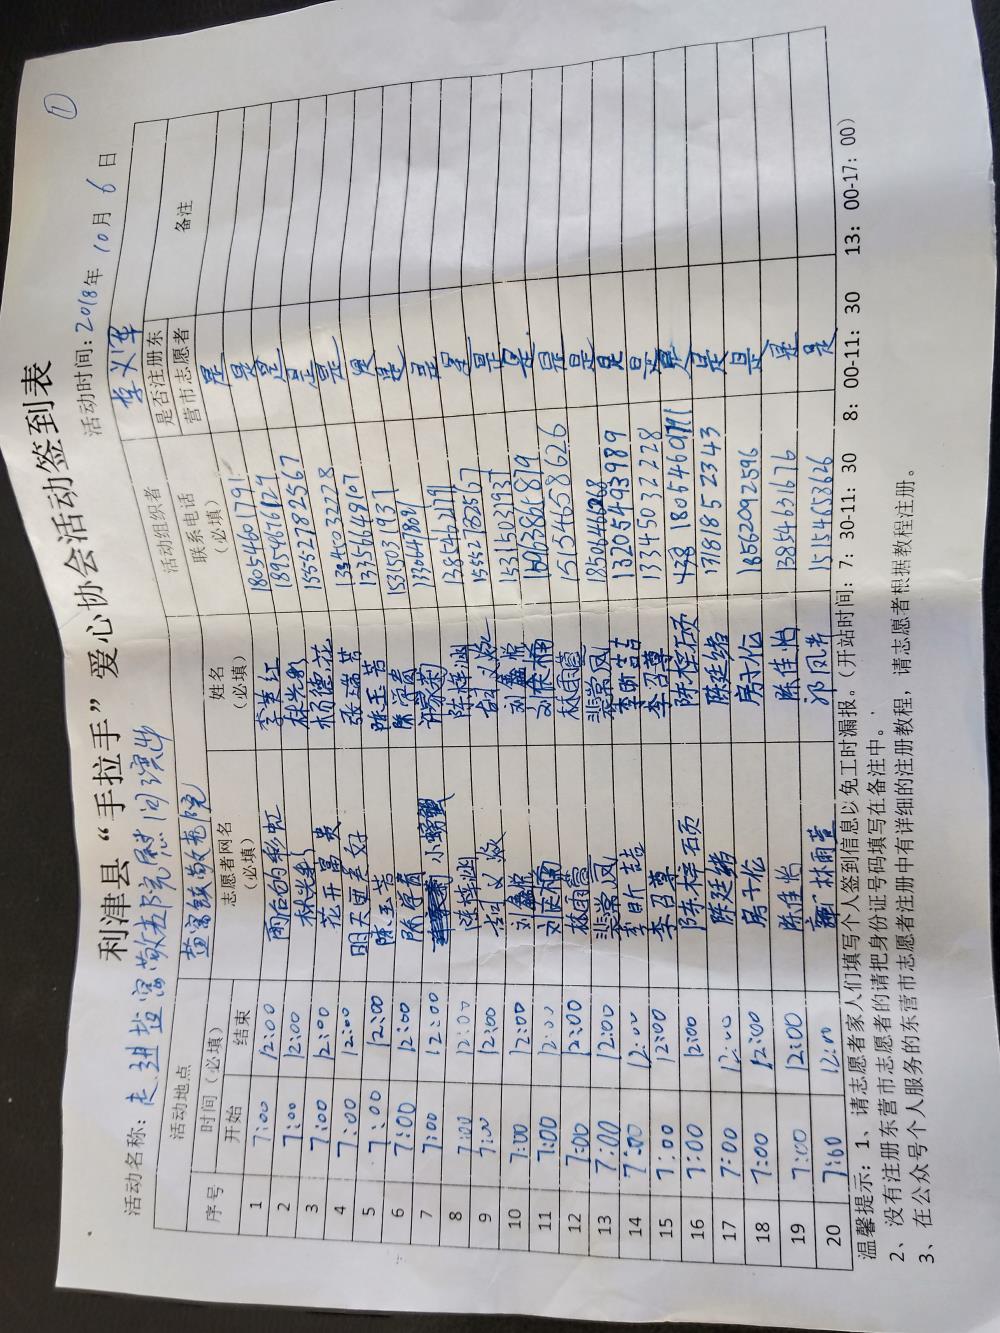 ①
利津县“手拉手”爱心协会活动签到表
活动名称：走进盐窝敬老院慰问演出 活动时间：2018年10月6日
活动地点 盐窝镇敬老院 活动组织者 李义军
序号 时间（必填） 志愿者网名（必填） 姓名（必填） 联系电话（必填） 是否注册东营市志愿者 备注
开始 结束
1 7:00 12:00 雨后的彩虹 李美红 18054601791 是
2 7:00 12:00 18954676129 是
3 7:00 12:00 花开富贵 杨德花 15552782567 是
4 7:00 12:00 明天更美好 张瑞芳 13345032228 是
5 7:00 12:00 陈玉芳 陈玉芳 13356649107 是
6 7:00 12:00 15315031937 是
7 7:00 12:00 小螃蟹 是
8 7:00 12:00 13854621191 是
9 7:00 12:00 15552782567 是
10 7:00 12:00 刘鑫悦 刘鑫悦 15315031937 是
11 7:00 12:00 刘 刘 是
12 7:00 12:00 林雨萱 林雨萱 15154658626 是
13 7:00 12:00 裴学凤 裴学凤 是
14 7:00 12:00 李昕喆 李昕喆 13205493989 是
15 7:00 12:00 李召尊 李召尊 13345032228 是
16 7:00 12:00 陈梓硕 陈梓硕 18054601791 是
17 7:00 12:00 陈廷皓 陈廷皓 17818852343 是
18 7:00 12:00 房子伦 房子伦 18562092596 是
19 7:00 12:00 陈佳怡 陈佳怡 13854631676 是
20 7:00 12:00 林雨萱 邓凤芹 15154653626 是
温馨提示：1、请志愿者家人们填写个人签到信息以免工时漏报。（开站时间：7：30-11：30 8：00-11：30 13：00-17：00）
2、没有注册东营市志愿者的请把身份证号码填写在备注中。
3、在公众号个人服务的东营市志愿者注册中有详细的注册教程，请志愿者根据教程注册。